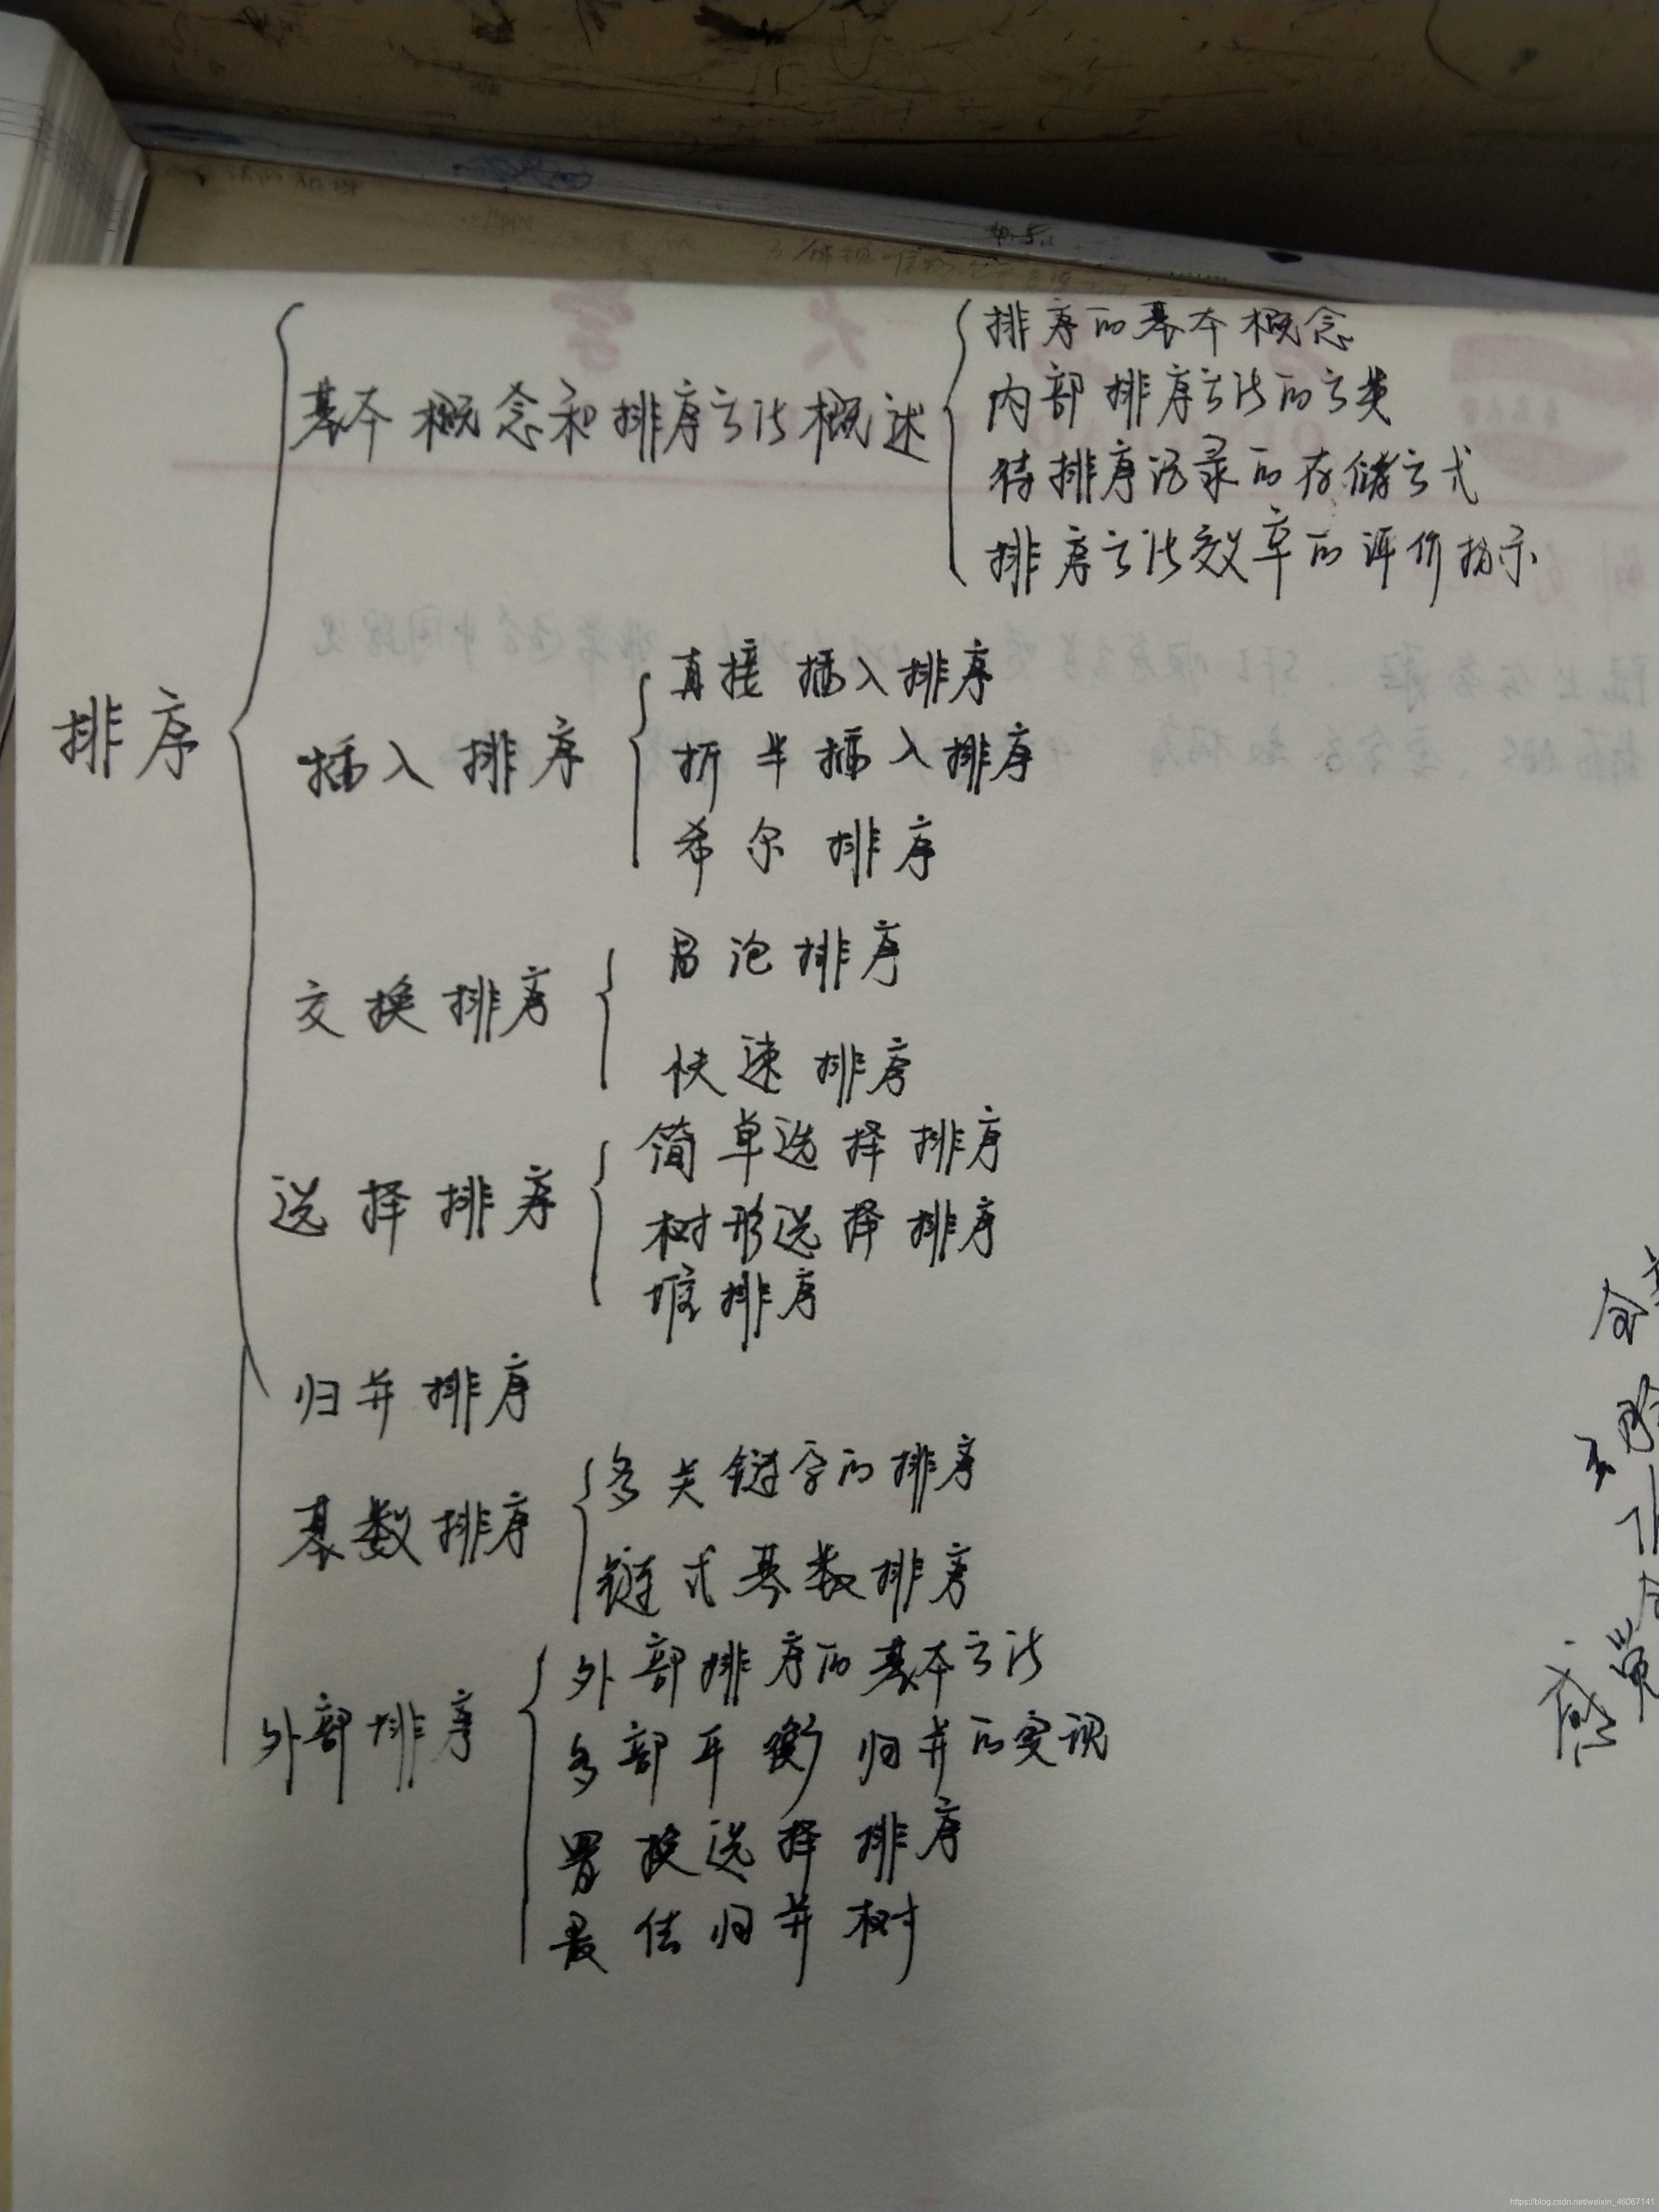 排序
基本概念和排序方法概述
排序的基本概念
内部排序方法的分类
待排序记录的存储方式
排序方法效率的评价指示
插入排序
直接插入排序
折半插入排序
希尔排序
交换排序
冒泡排序
快速排序
选择排序
简单选择排序
树形选择排序
堆排序
归并排序
基数排序
多关键字的排序
链式基数排序
外部排序
外部排序的基本方法
多部平衡归并的实现
置换选择排序
最佳归并树
感觉
https://blog.csdn.net/weixin_46067141